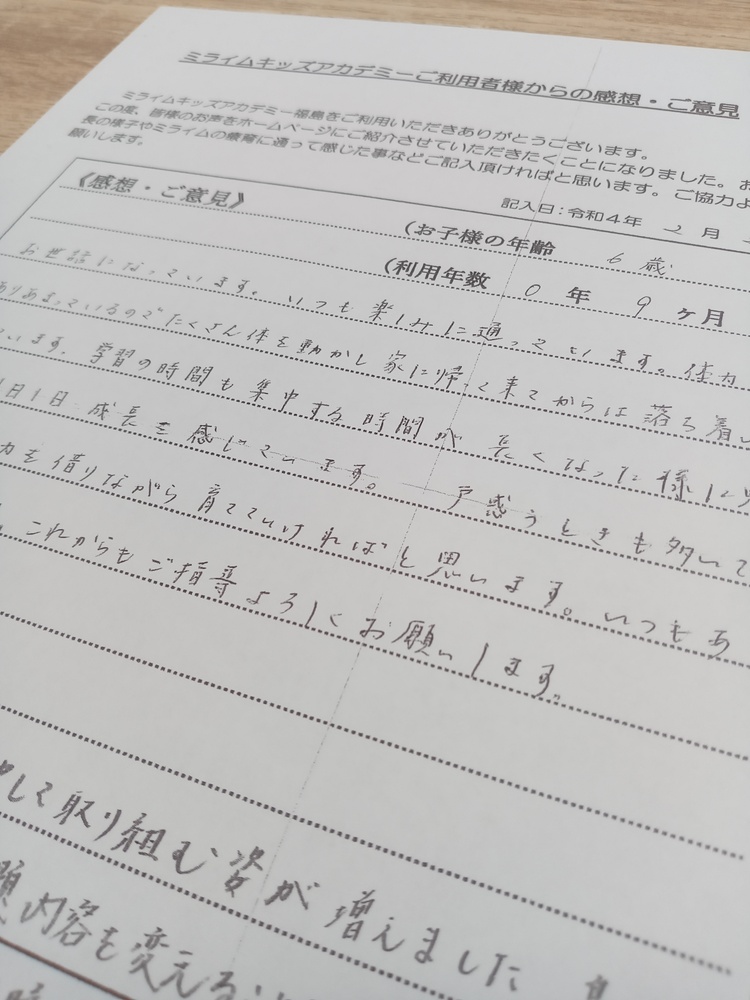 ミライムキッズアカデミーご利用者様からの感想・ご意見
ミライムキッズアカデミー福島をご利用いただきありがとうございます。
この度、皆様のお声をホームページにご紹介させていただきたくことになりました。お
長の様子やミライムの療育に通って感じた事などご記入頂ければと思います。ご協力よ
願いします。
記入日：令和４年 2 月
《感想・ご意見》
(お子様の年齢 6歳
(利用年数 0 年 9 ケ月
お世話になっています。いつも楽しみに通っています。体力
ありあまっているのでたくさん体を動かし家に帰って来てからは落ち着い
います。学習の時間も集中する時間が長くなった様に
1日1日成長を感じています。戸惑うときも多いで
力を借りながら育てていければと思います。いつもあ
これからもご指導よろしくお願いします。
して取り組む姿が増えました
内容を変える